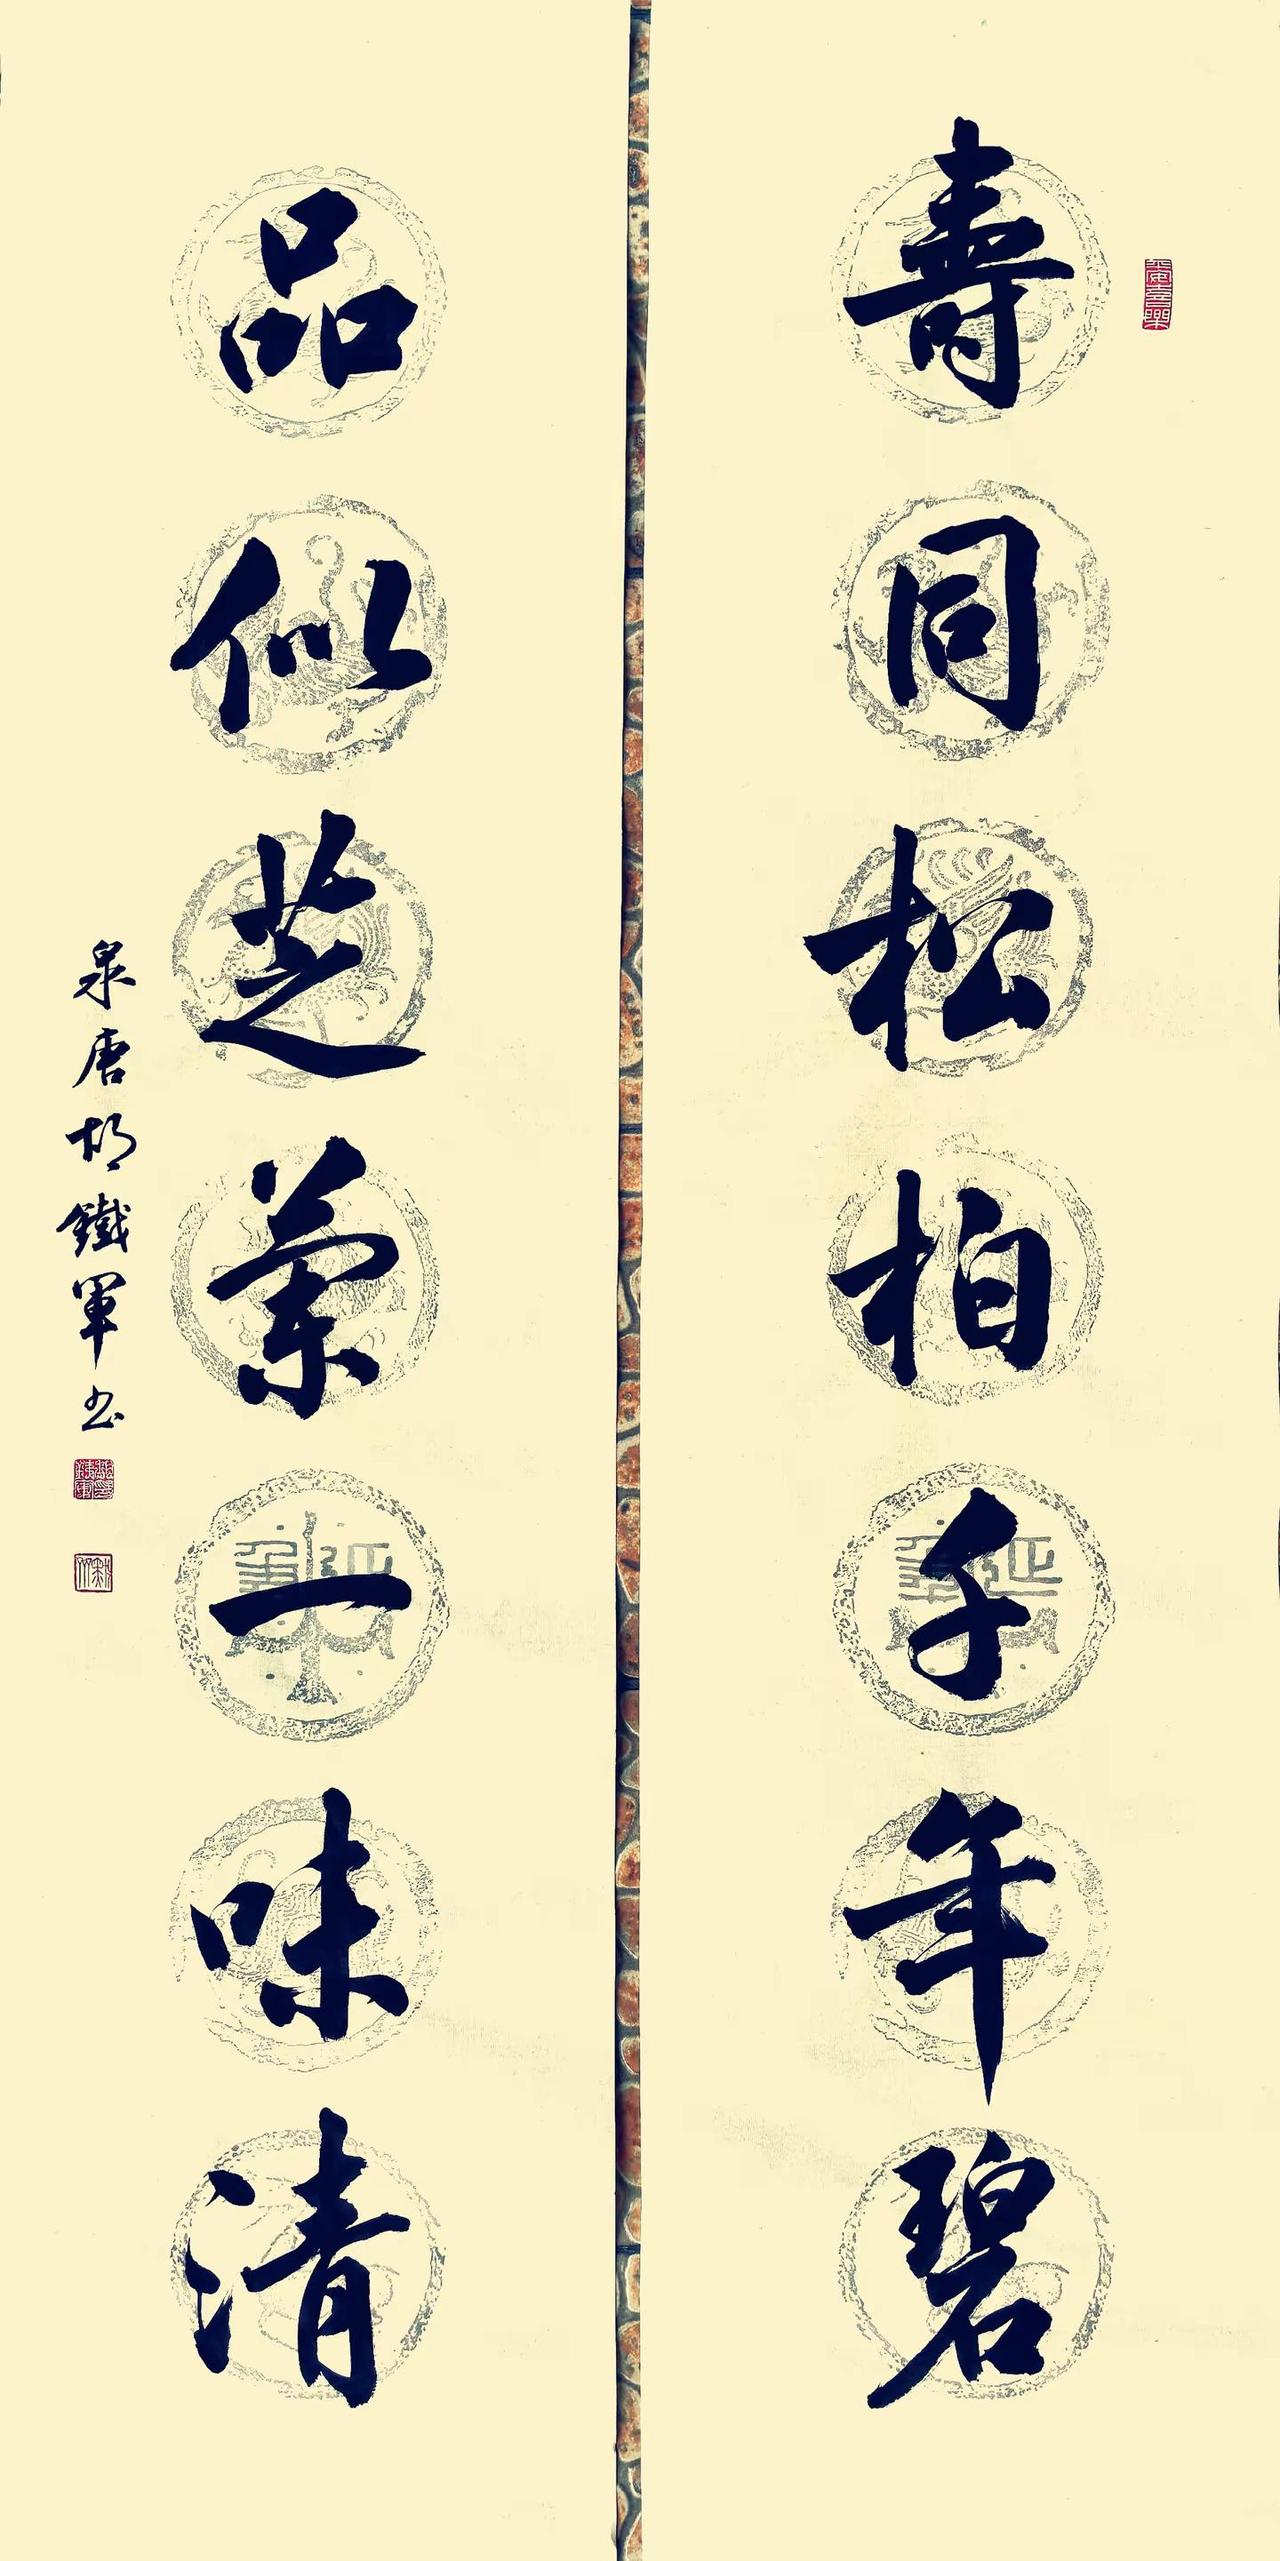 壽同松柏千年碧
品似芝蘭一味清
泉唐胡鐵軍书